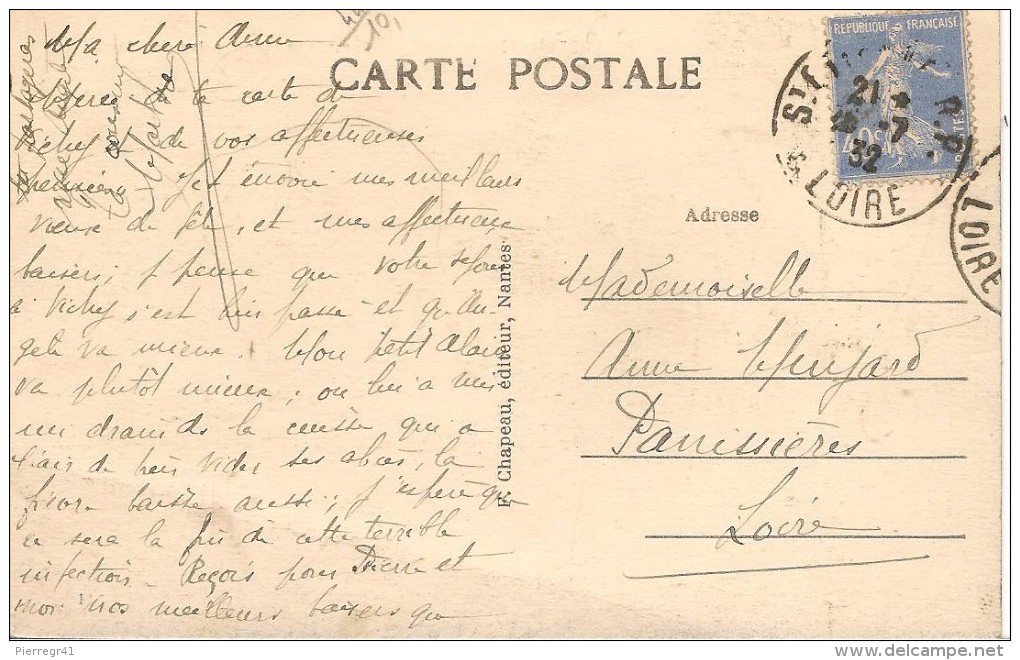 CARTE POSTALE
Ma chère Anne
Merci de ta carte de
Vichy et de vos affectueuses
pensées. Je t'envoie mes meilleurs
vœux de fête, et mes affectueux
baisers; je pense que votre séjour
à Vichy s'est bien passé et qu'An-
gèle va mieux. Mon petit Alain
va plutôt mieux; on lui a mis
un drain ds la cuisse qui a
l'air de bien vider ses abcès, la
fièvre baisse aussi; j'espère que
ce sera la fin de cette terrible
infection. Reçois pour Pierre et
moi nos meilleurs baisers que
F. Chapeau, éditeur, Nantes
REPUBLIQUE FRANÇAISE
40c POSTES
ST ETIENNE R.P.
21
-7
32
LOIRE
LOIRE
Adresse
Mademoiselle
Anne
Panissières
Loire
Pierregr41